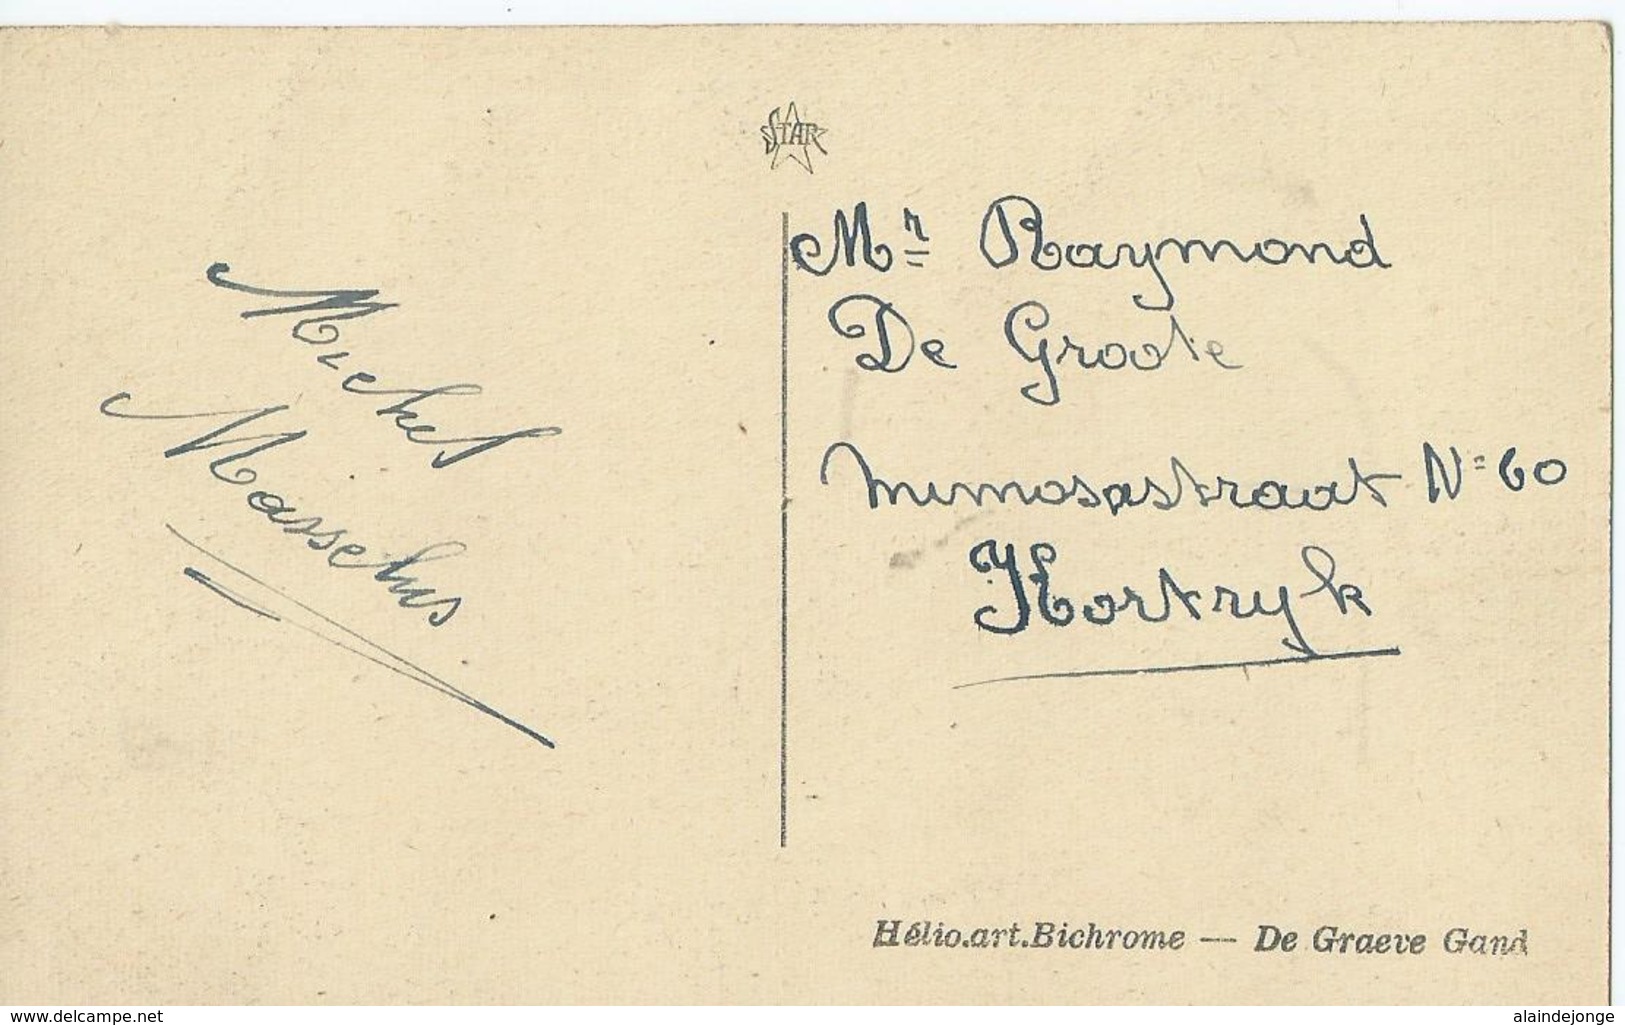 STAR
Michel
Masschus
Mr Raymond
De Groote
Mimosastraat No 60
Kortryk
Hélio.art.Bichrome — De Graeve Gand
www.delcampe.net
alaindejonge